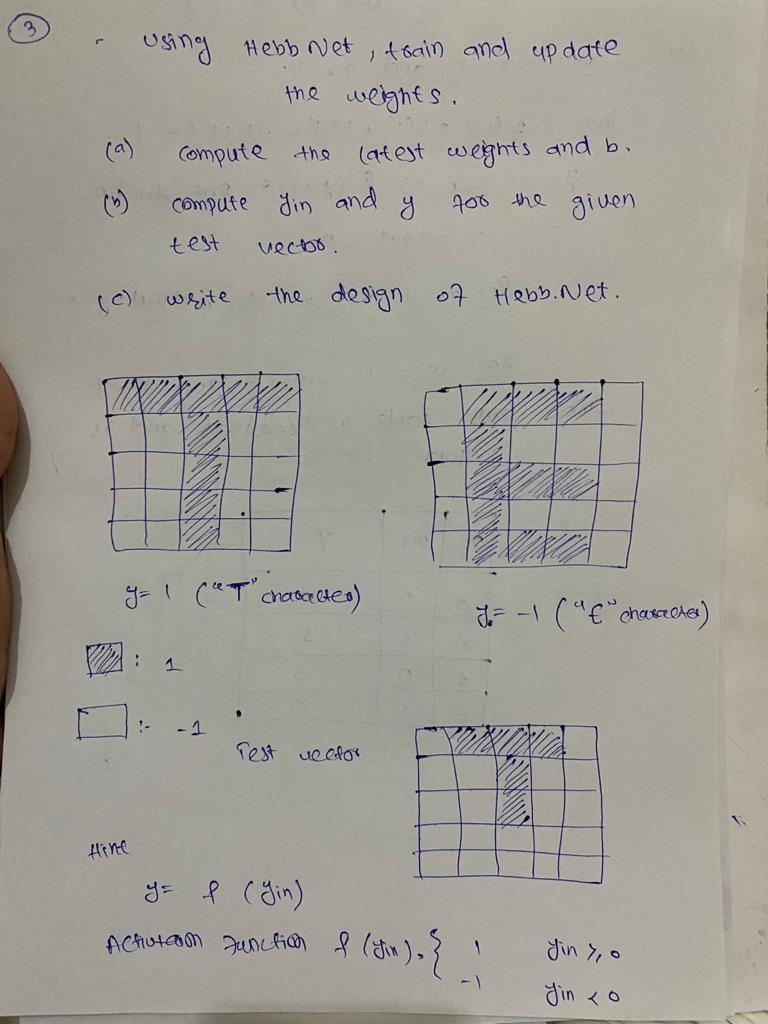 3
- Using Hebb Net, train and update
the weights.
(a) compute the latest weights and b.
(b) compute yin and y for the given
test vector.
(c) write the design of Hebb.Net.
y= 1 ("T" character)
y= -1 ("E" character)
: 1
:- -1
Test vector
Hint
y= f (yin)
Activation Function f (yin) = { 1 yin ≥ 0
-1 yin < 0